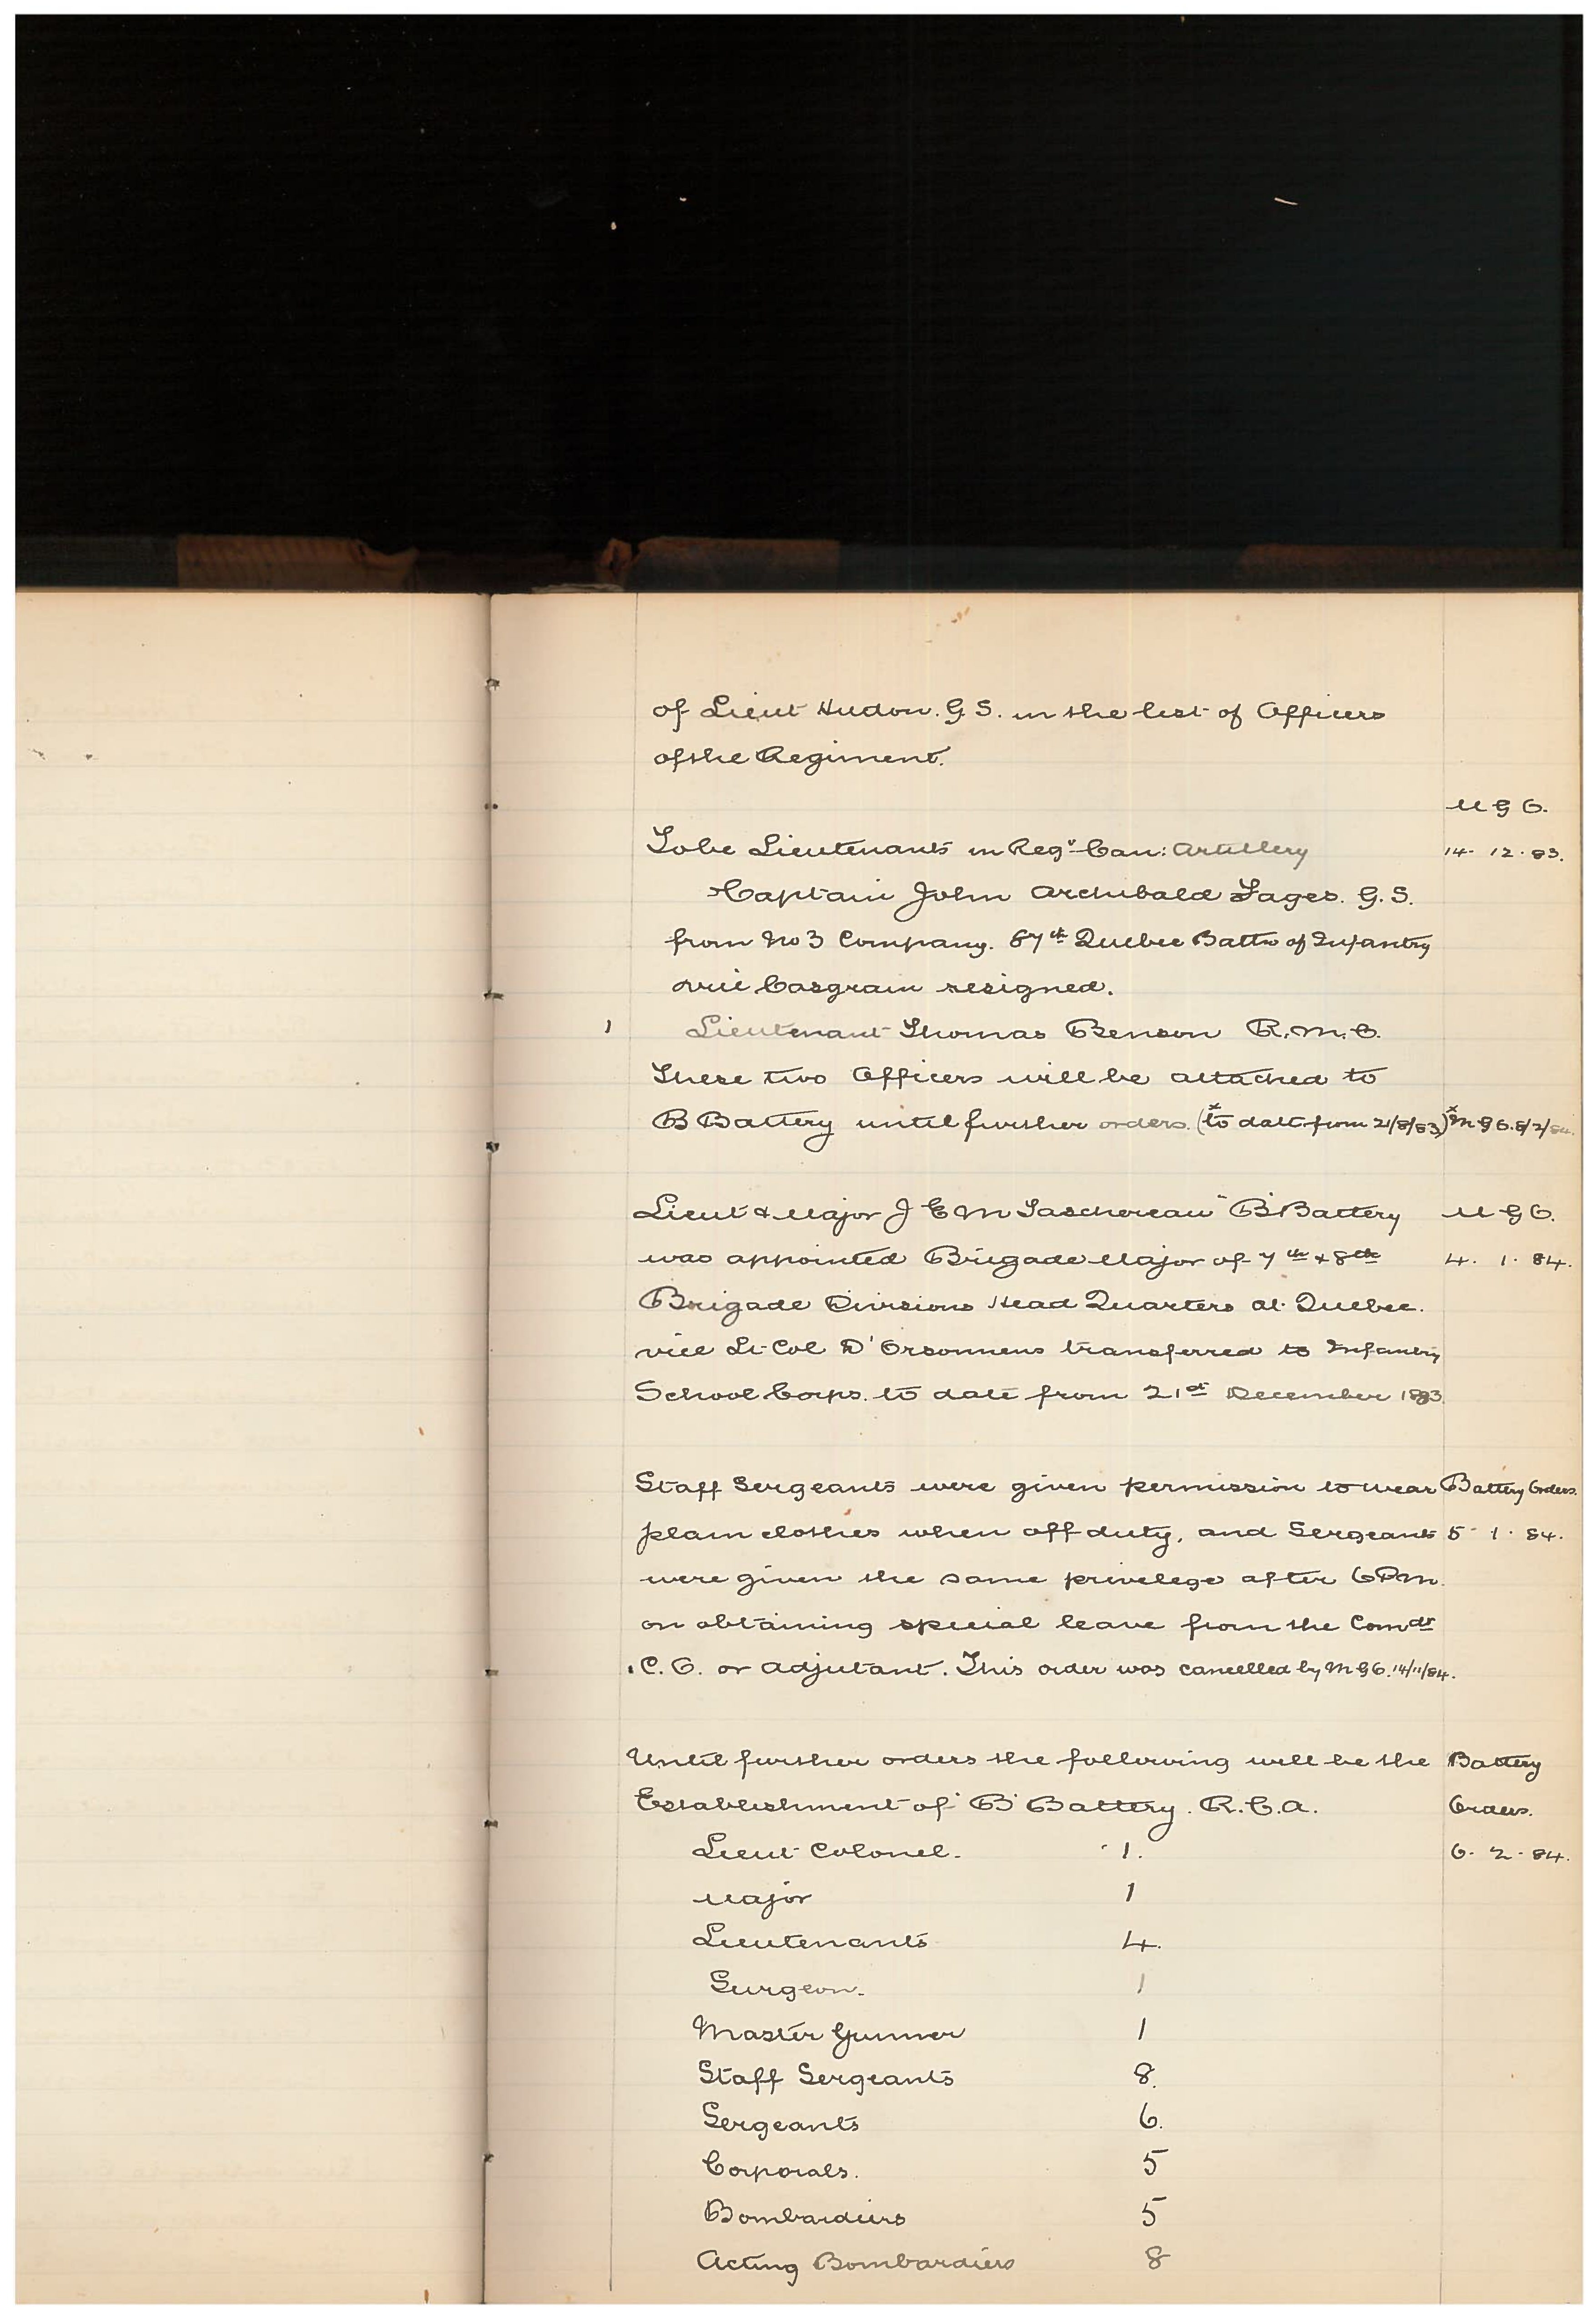 of Lieut Hudon. G.S. in the list of Officers
of the Regiment.
M G O.
To be Lieutenants in Regt Can: Artillery 14. 12. 83.
Captain John Archibald Fages. G.S.
from No 3 Company. 87th Quebec Battn of Infantry
vice Casgrain resigned.
1 Lieutenant Thomas Benson R.M.C.
These two Officers will be attached to
B Battery until further orders. (x to date from 21/8/83) x M G O. 8/2/84.
Lieut & Major J E M Taschereau "B" Battery M G O.
was appointed Brigade Major of 7th & 8th 4. 1. 84.
Brigade Divisions Head Quarters at Quebec.
vice Lt Col D'Orsonnens transferred to Infantry
School Corps. to date from 21st December 1883.
Staff Sergeants were given permission to wear Battery Orders.
plain clothes when off duty, and Sergeants 5. 1. 84.
were given the same privelege after 6 P.m.
on obtaining special leave from the Comdt
. C. O. or Adjutant. This order was cancelled by M G O. 14/11/84.
Until further orders the following will be the Battery
Establishment of "B" Battery. R.C.A. Orders.
Lieut Colonel. 1. 6. 2. 84.
Major 1
Lieutenants 4.
Surgeon. 1
Master Gunner 1
Staff Sergeants 8.
Sergeants 6.
Corporals. 5
Bombardiers 5
Acting Bombardiers 8